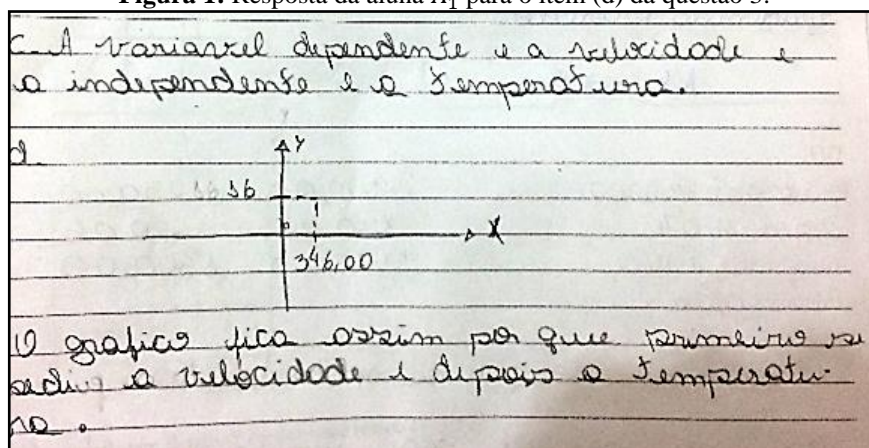 Figura 1: Resposta da aluna A1 para o item (d) da questão 3.
C. A variavel dependente e a velocidade e
a independente e a temperatura.
d.
Y
X
346,00
O grafico fica assim por que primeiro se
pediu a velocidade e depois a temperatu-
ra.